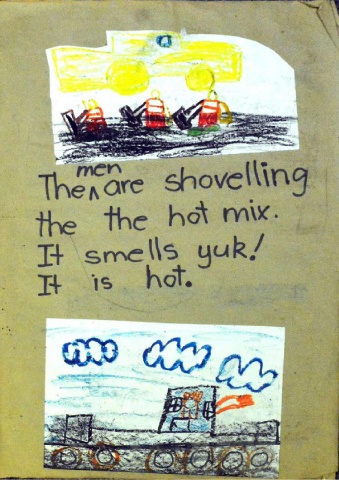 The men are shovelling
the the hot mix.
It smells yuk!
It is hot.